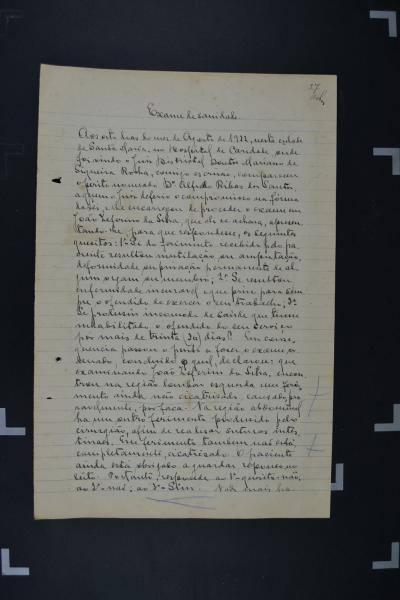 37
Exame de sanidade
Aos oito dias do mez de Agosto de 1922, nesta cidade
de Santa Maria, no Hospital de Caridade, onde
foi vindo o Juiz Districtal Doutor Mariano de
Siqueira Rocha, comigo escrivão, compareceu
o perito nomeado Dr. Alfredo Ribas dos Santos,
a quem o Juiz deferio o compromisso na fórma
da lei, e lhe encarregou de proceder o exame em
João Zeferino da Silva, que ali se achava, apresen
tando-lhe, para que respondesse, os seguintes
quesitos: 1º Se do ferimento recebido pelo pa
ciente resultou mutilação ou amputação,
deformidade ou privação permanente de al
gum orgam ou membro; 2º Se resultou
enfermidade incuravel e que prive para sem
pre o offendido de exercer o seu trabalho; 3º
Se produziu incomodo de saúde que tenha
inhabilitado o offendido do seu serviço
por mais de trinta (30) dias? Em conse
quencia passou o perito a fazer o exame or
denado concluido o qual, declarou: que
examinando João Zeferino da Silva, encon
trou na região lombar esquerda um feri
mento ainda não cicatrisado, causado, pro
vavelmente, por faca. Na região abdominal
ha um outro ferimento produzido pelo
cirurgião, afim de realisar suturas intes
tinaes. Este ferimento tambem não está
completamente cicatrisado. O paciente
ainda está obrigado a guardar repouso no
leito. Portanto, responde ao 1º quesito - não;
ao 2º - não; ao 3º - Sim. Nada mais ha